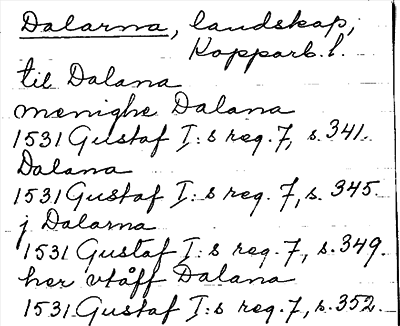 Dalarna, landskap,
Kopparb. l.
til Dalana
menighe Dalana
1531 Gustaf I:s reg. 7, s. 341.
Dalana
1531 Gustaf I:s reg. 7, s. 345.
j Dalarna
1531 Gustaf I:s reg. 7, s. 349.
her vtåff Dalana
1531 Gustaf I:s reg. 7, s. 352.